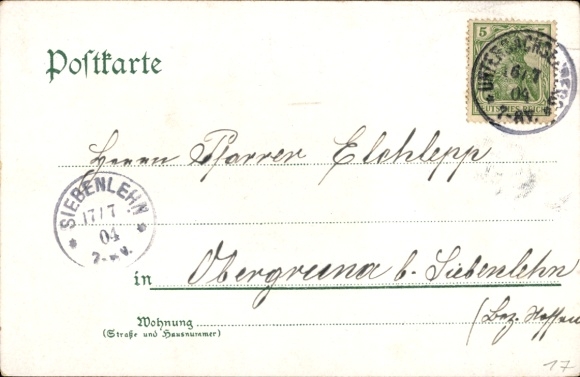 Postkarte
5
DEUTSCHES REICH
16/7
04
7-8V.
Herrn Pfarrer Elchlepp
SIEBENLEHN
17/7
04
7-8V.
in Obergruna b. Siebenlehn
Wohnung
(Straße und Hausnummer)
(Bez.
17